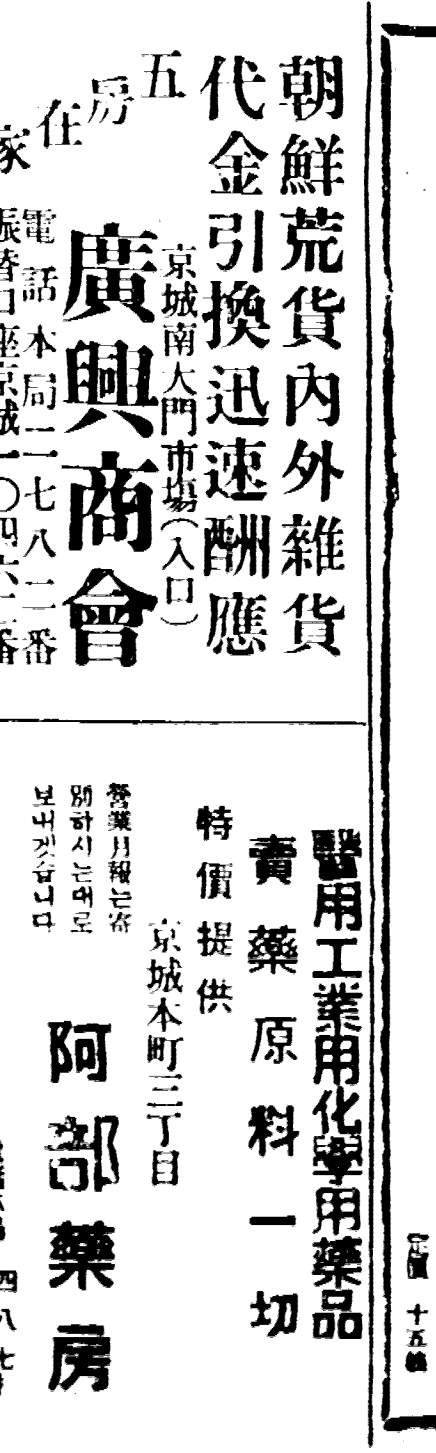 朝鮮荒貨內外雜貨
代金引換迅速酬應
五房在家
京城南大門市場(入口)
廣興商會
電話本局二七八二番
振替口座京城一〇四六二番
醫用工業用化學用藥品
賣藥原料一切
特價提供
京城本町三丁目
營業月報는寄
別하시는대로
보내겟습니다
阿部藥房
定價 十五錢